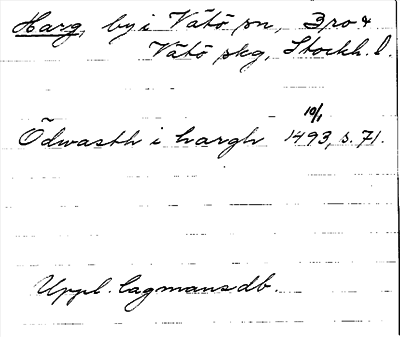 Harg, by i Vätö sn, Bro &
Vätö skg, Stockh. l.
10/1
Ödwasth i hargh 1493, s. 71.
Uppl. lagmansdb.